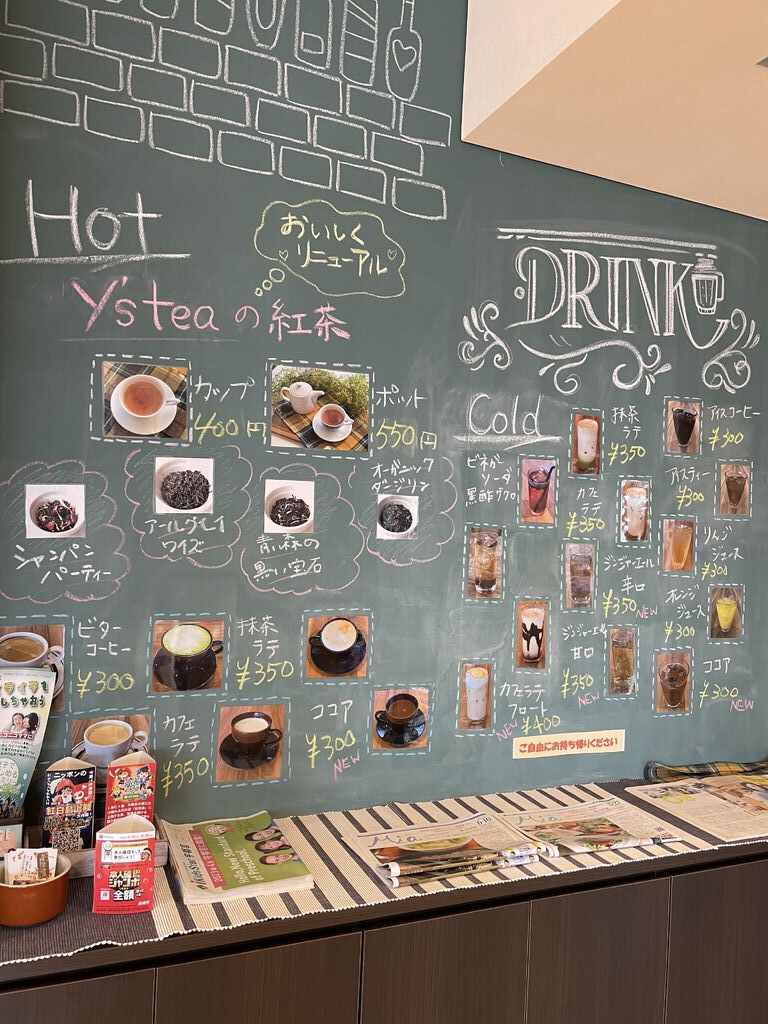 Hot
おいしく
リニューアル
Y'stea の 紅茶
カップ
400円
ポット
550円
シャンパン
パーティー
アールグレイ
ワイズ
青森の
黒い宝石
オーガニック
ダージリン
ビター
コーヒー
¥300
抹茶
ラテ
¥350
カフェ
ラテ
¥350
ココア
¥300
NEW
DRINK
Cold
抹茶
ラテ
¥350
アイスコーヒー
¥300
ビネガー
ソーダ
黒酢ザクロ
カフェ
ラテ
¥350
アイスティー
¥300
ジンジャーエール
辛口
¥350
NEW
りんご
ジュース
¥300
オレンジ
ジュース
¥300
ジンジャーエール
甘口
¥350
NEW
カフェラテ
フロート
NEW ¥400
ココア
¥300
NEW
ご自由にお持ち帰りください
ニッポンの
本人確認
ジャンボ
全額
Mia
6.10
Mia